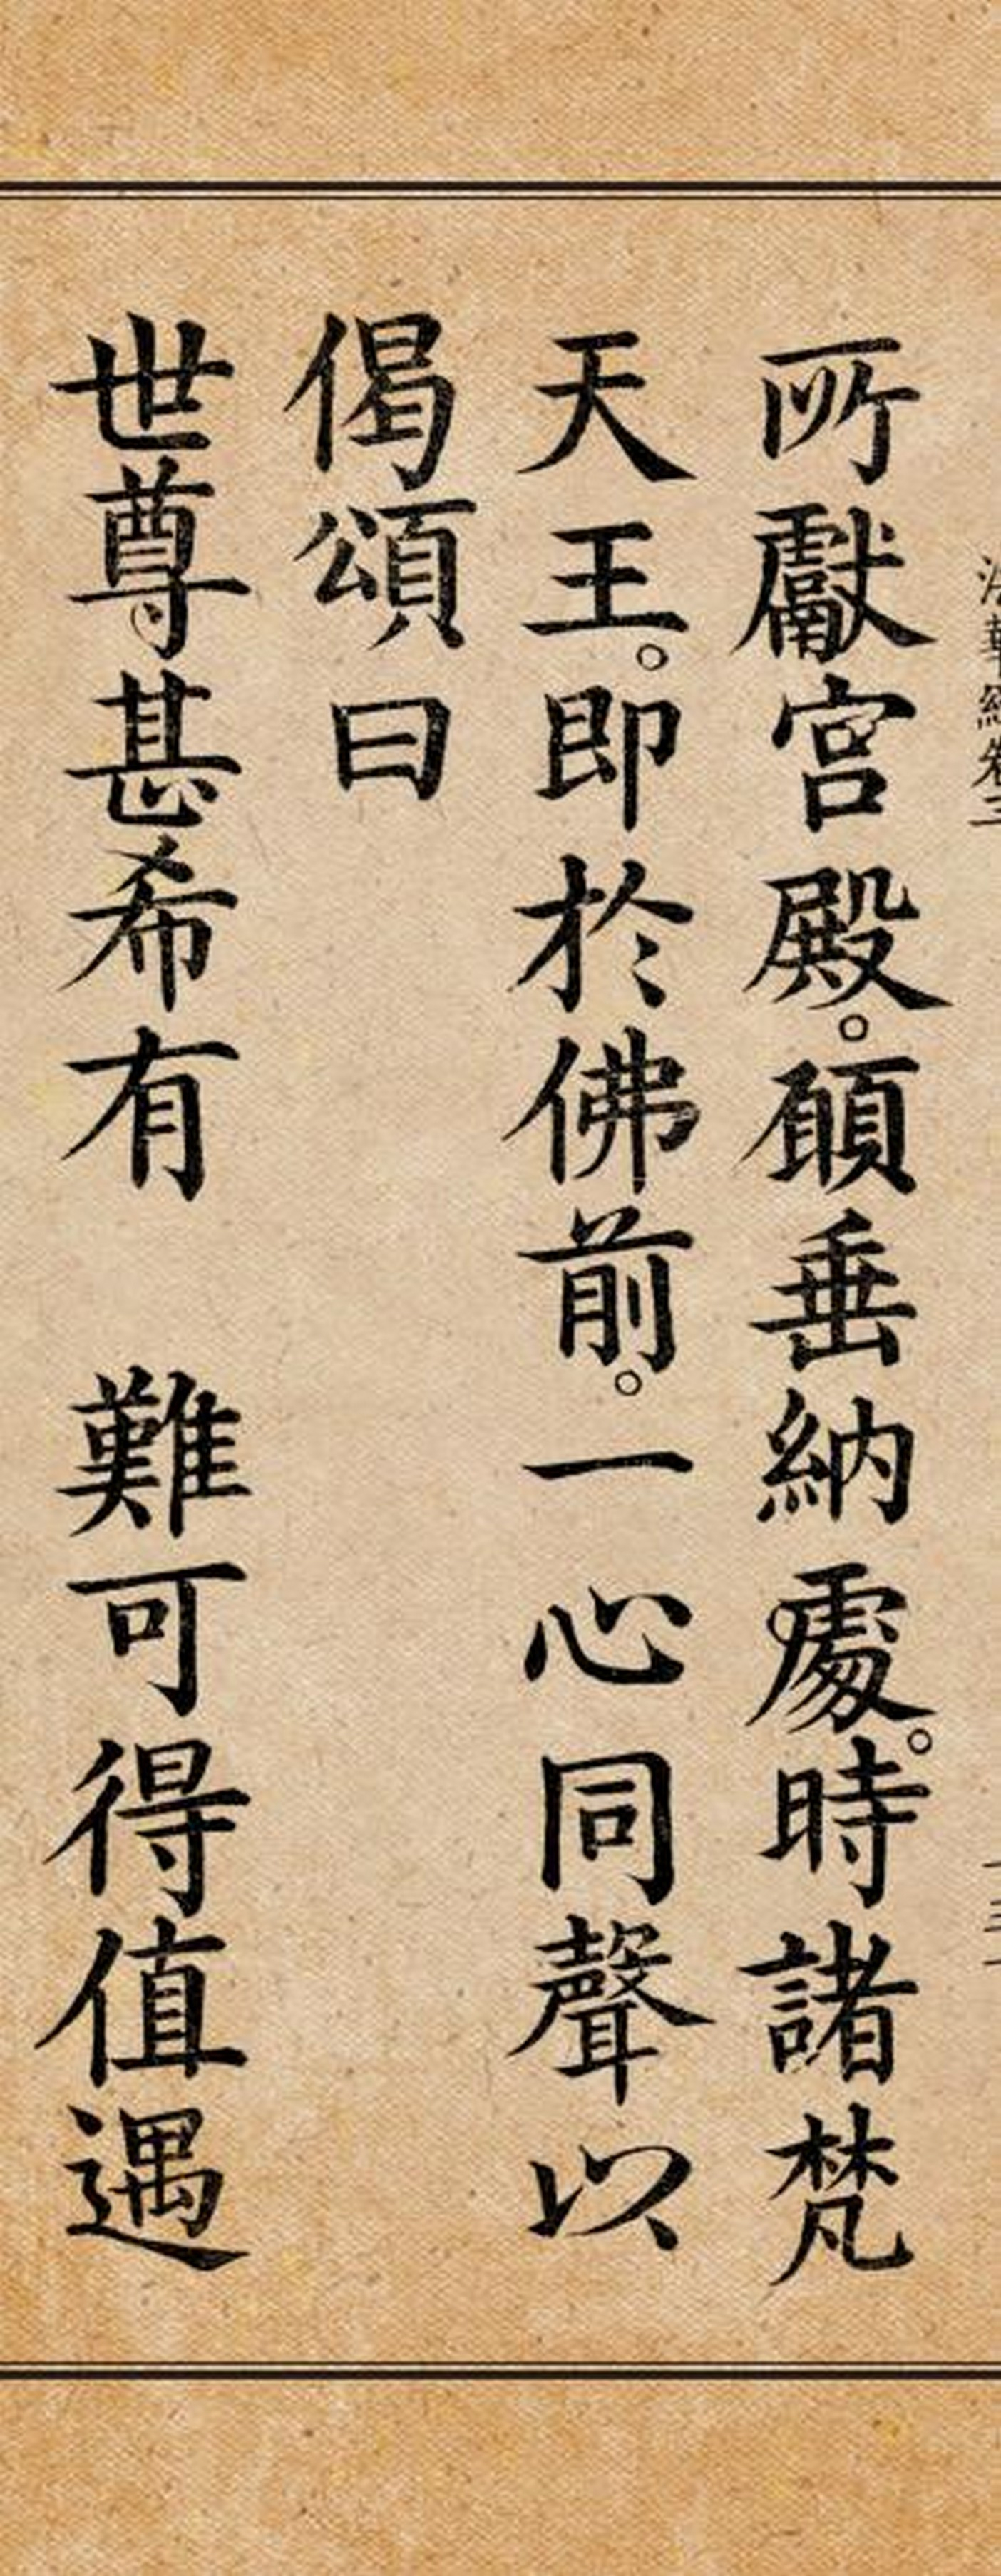 法華經卷三
所獻宮殿。願垂納處。時諸梵
天王。即於佛前。一心同聲以
偈頌曰
世尊甚希有　難可得值遇